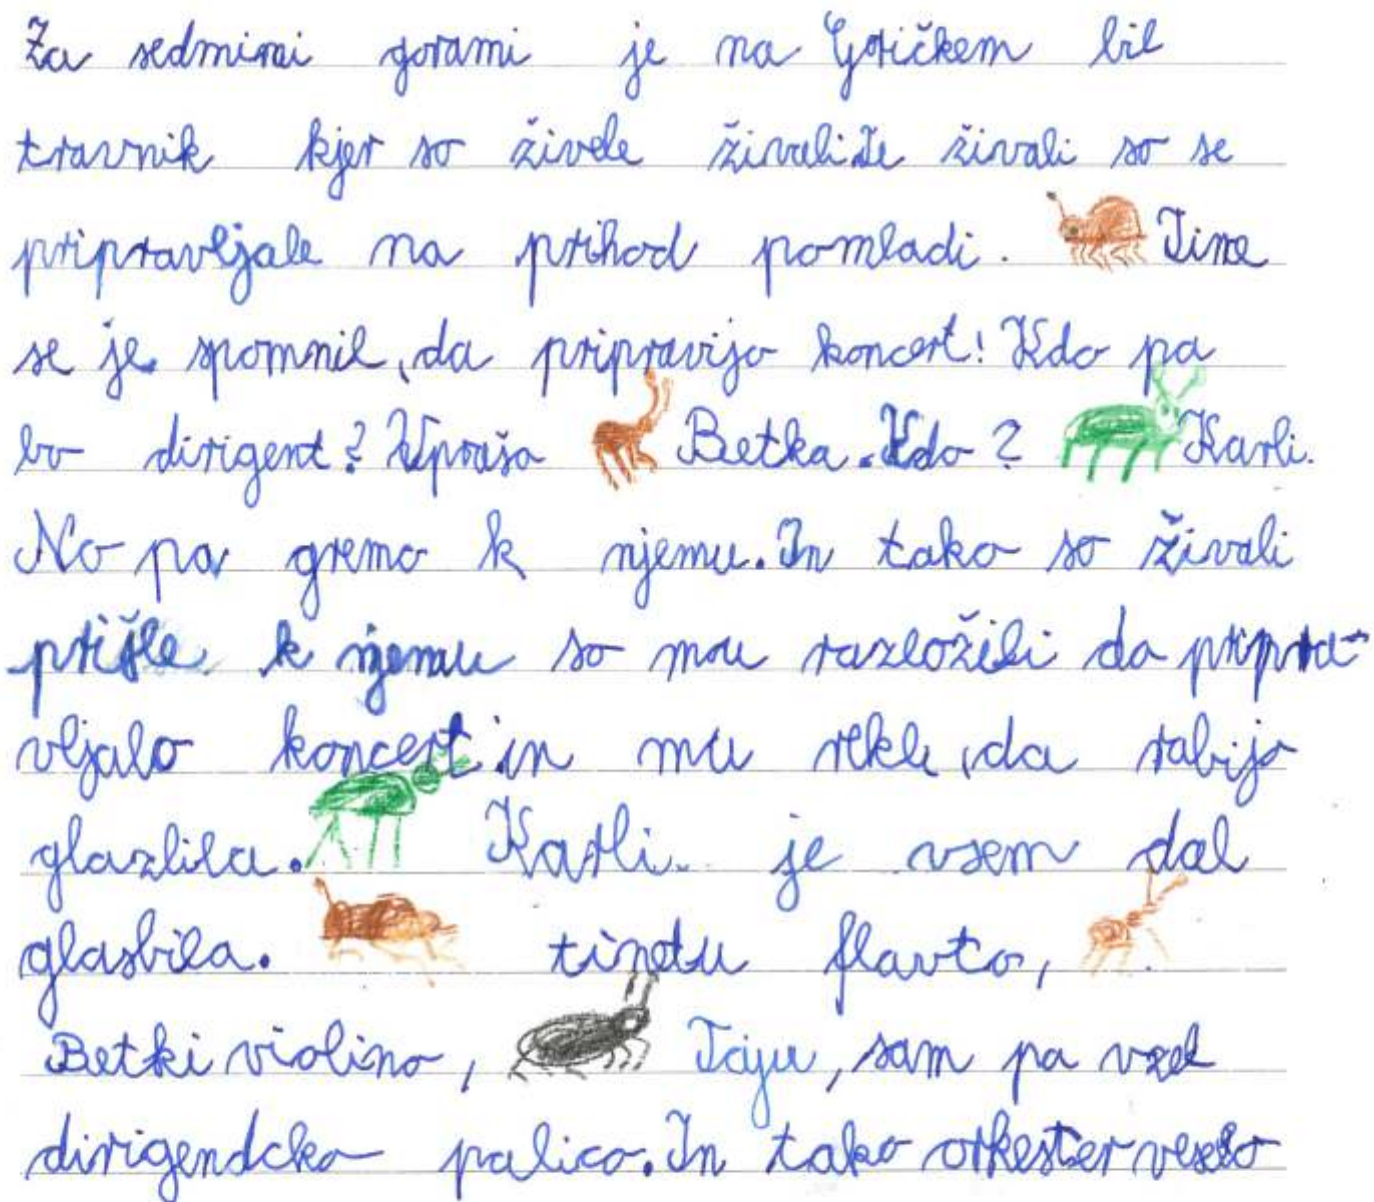 Za sedmimi gorami je na Goričkem bil
travnik kjer so živele živali. Te živali so se
pripravljale na prihod pomladi. Tine
se je spomnil, da pripravijo koncert! Kdo pa
bo dirigent? Vpraša Betka. Kdo? Karli.
No pa gremo k njemu. In tako so živali
prišle k njemu so mu razložili da pripra-
vljalo koncert in mu rekle, da rabijo
glazlila. Karli je vsem dal
glasbila. tinetu flavto,
Betki violino, Taju, sam pa vzel
dirigendcko palico. In tako orkester veselo